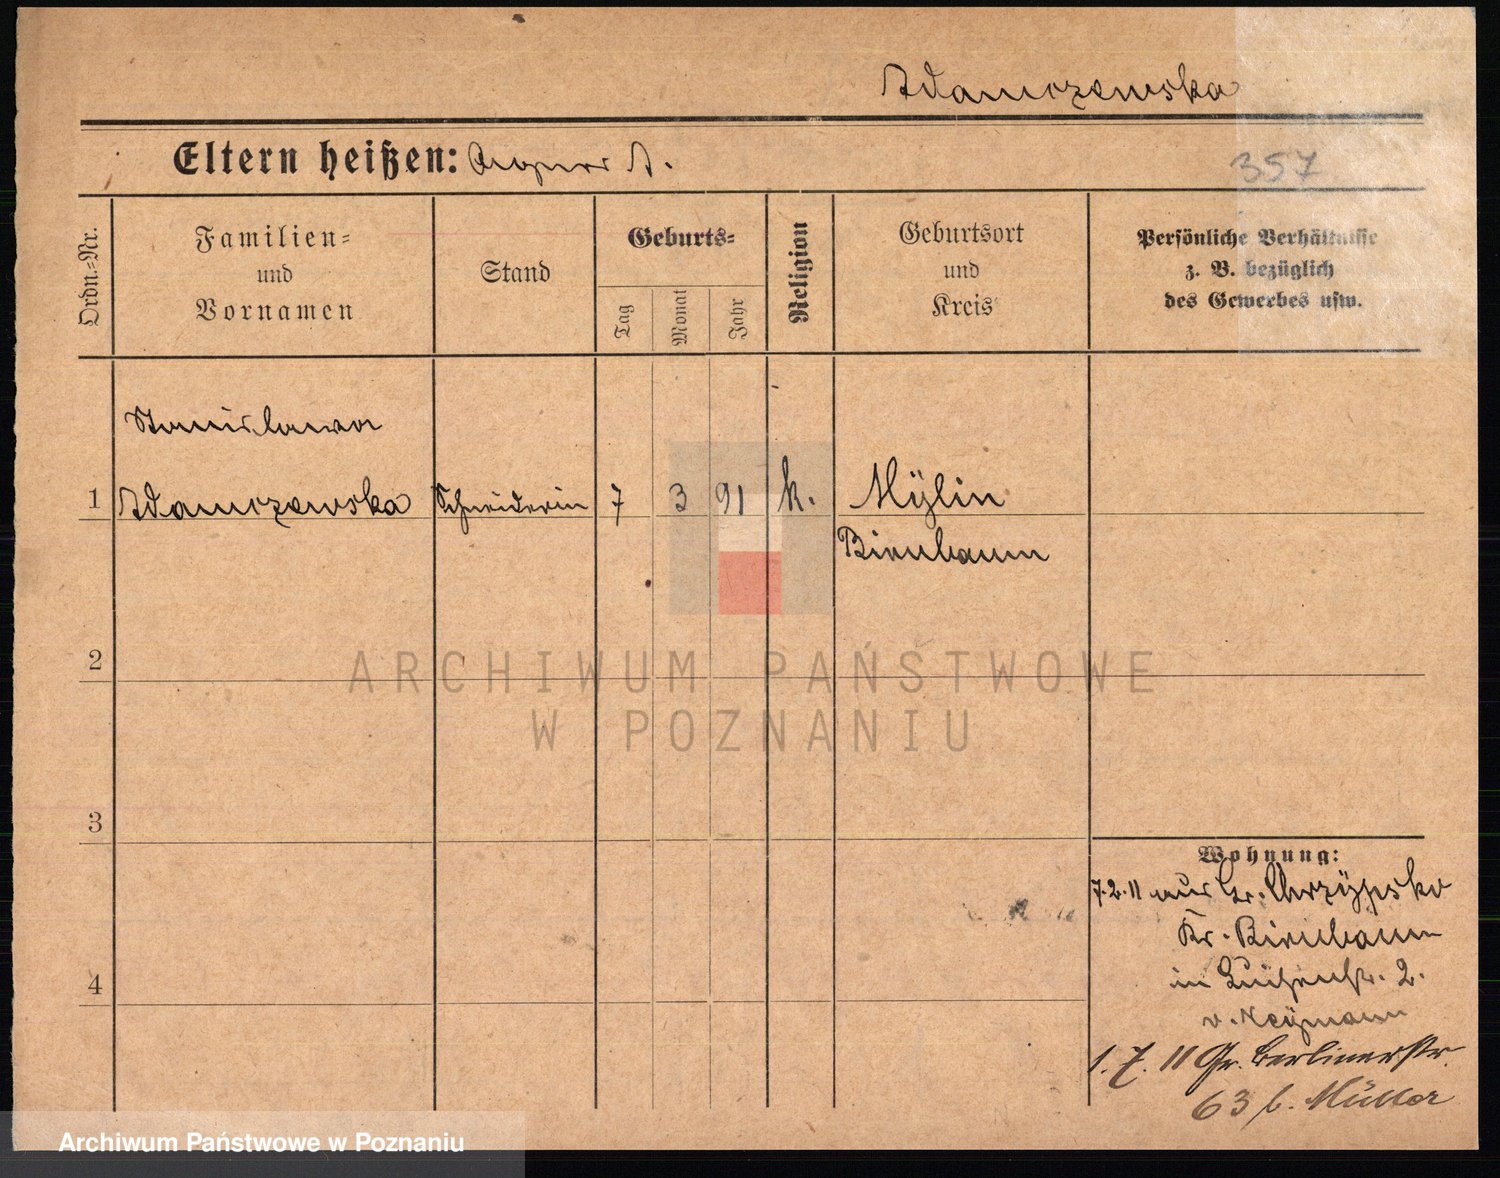 Adamczewska
Eltern heißen: A.
357
Ordn.-Nr.
Familien-
und
Vornamen
Stand
Geburts-
Tag
Monat
Jahr
Religion
Geburtsort
und
Kreis
Persönliche Verhältnisse
z. B. bezüglich
des Gewerbes usw.
Stanislawa
1 Adamczewska Schneiderin 7 3 91 k. Mylin
Birnbaum
2
3
4
Wohnung:
7.2.11 aus Gr. Chrzypsko
Kr. Birnbaum
in Luisenstr. 2.
v. Heymann
1.7.11 Gr. Berlinerstr.
63 b. Müller
ARCHIWUM PAŃSTWOWE
W POZNANIU
Archiwum Państwowe w Poznaniu